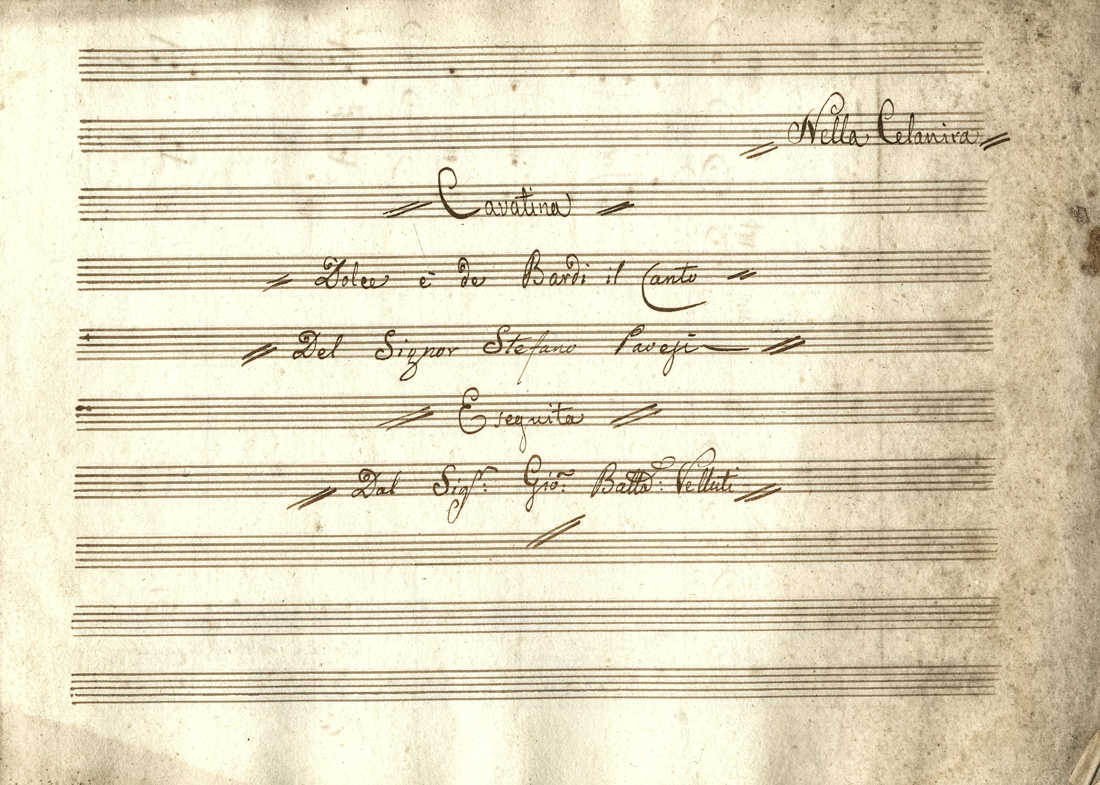 Nella Celanira
Cavatina
Dolce è de Bardi il Canto
Del Signor Stefano Pavesi
Eseguita
Dal Sigr: Gio: Batta: Velluti